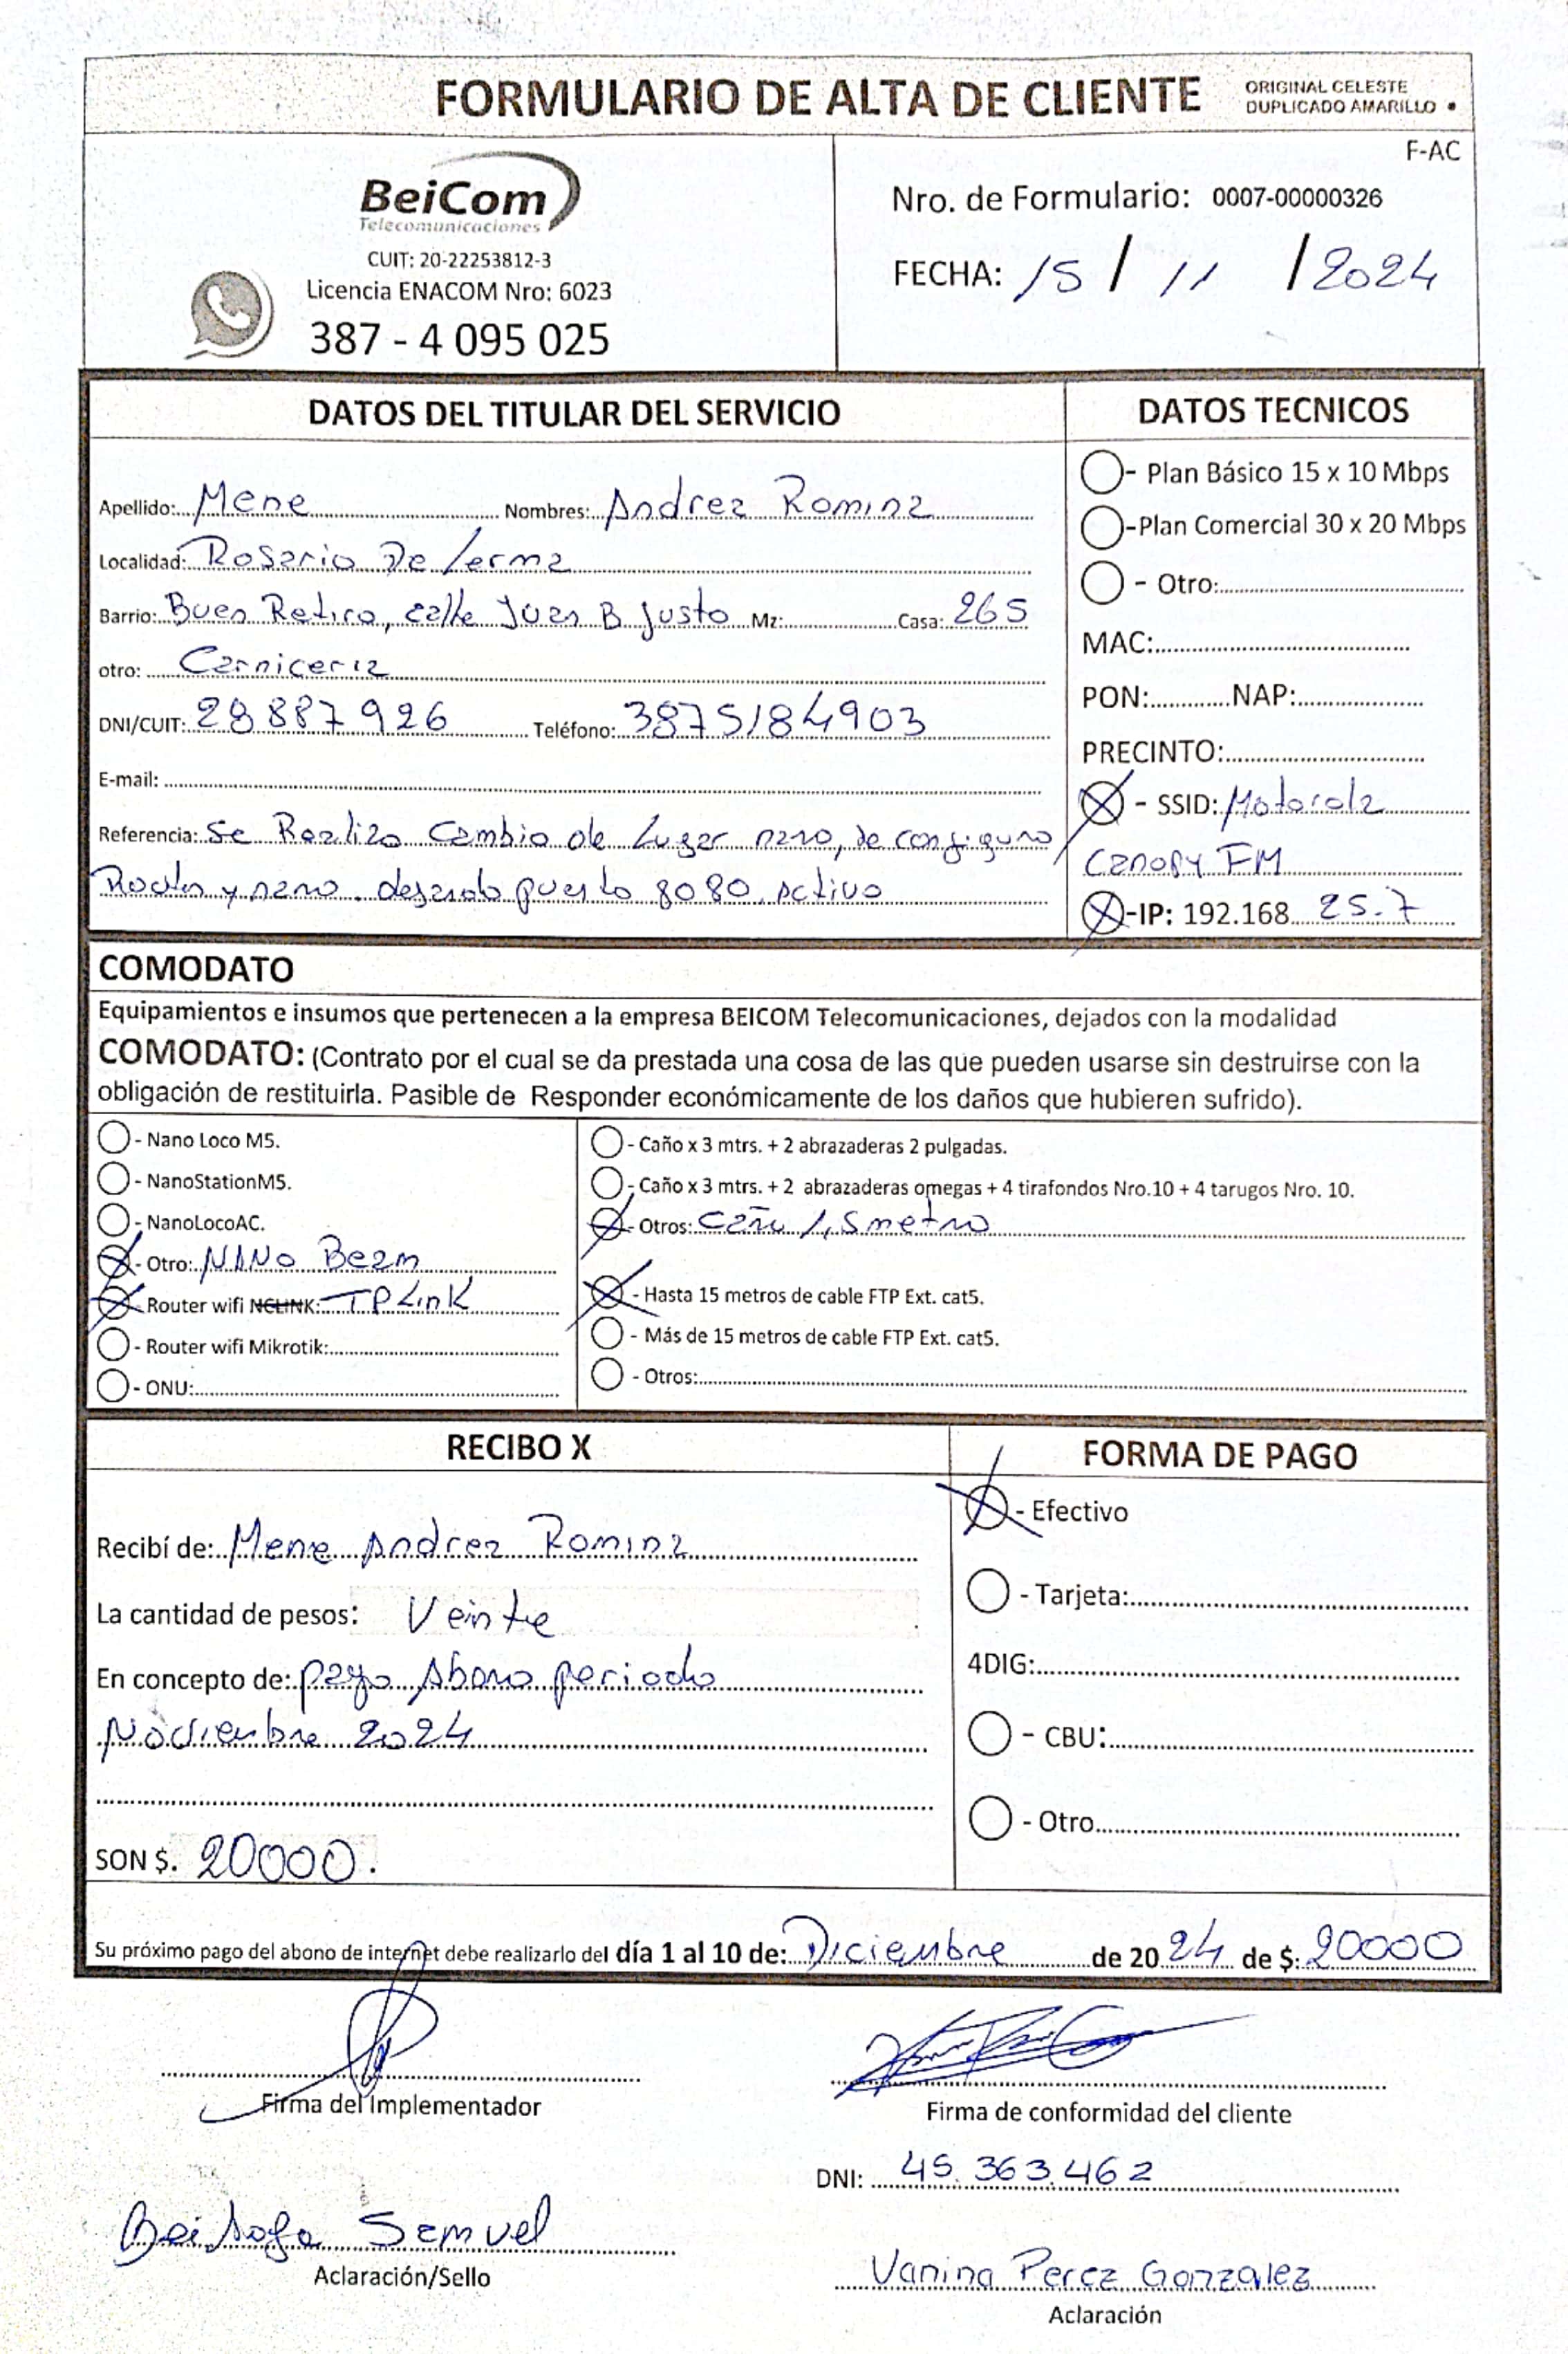 FORMULARIO DE ALTA DE CLIENTE
ORIGINAL CELESTE
DUPLICADO AMARILLO •
F-AC
BeiCom
Telecomunicaciones
CUIT: 20-22253812-3
Licencia ENACOM Nro: 6023
387 - 4 095 025
Nro. de Formulario: 0007-00000326
FECHA: 15 / 11 / 2024
DATOS DEL TITULAR DEL SERVICIO
Apellido: Mene Nombres: Andrea Romina
Localidad: Rosario De Lerma
Barrio: Buen Retiro, calle Juan B Justo Mz: Casa: 265
otro: Carniceria
DNI/CUIT: 28887926 Teléfono: 3875184903
E-mail:
Referencia: Se Realizo Cambio de Lugar nano, se configuro
Router y nano. dejando puerto 8080 activo
DATOS TECNICOS
- Plan Básico 15 x 10 Mbps
-Plan Comercial 30 x 20 Mbps
- Otro:
MAC:
PON: NAP:
PRECINTO:
- SSID: Motorola
Canopy FM
-IP: 192.168 25.7
COMODATO
Equipamientos e insumos que pertenecen a la empresa BEICOM Telecomunicaciones, dejados con la modalidad
COMODATO: (Contrato por el cual se da prestada una cosa de las que pueden usarse sin destruirse con la
obligación de restituirla. Pasible de Responder económicamente de los daños que hubieren sufrido).
- Nano Loco M5.
- NanoStationM5.
- NanoLocoAC.
- Otro: NANO Beam
- Router wifi NCLINK: TPLinK
- Router wifi Mikrotik:
- ONU:
- Caño x 3 mtrs. + 2 abrazaderas 2 pulgadas.
- Caño x 3 mtrs. + 2 abrazaderas omegas + 4 tirafondos Nro.10 + 4 tarugos Nro. 10.
- Otros: Caño 1,5 metro
- Hasta 15 metros de cable FTP Ext. cat5.
- Más de 15 metros de cable FTP Ext. cat5.
- Otros:
RECIBO X
Recibí de: Mene Andrea Romina
La cantidad de pesos: Veinte
En concepto de: pago Abono periodo
Noviembre 2024
SON $. 20000.
FORMA DE PAGO
- Efectivo
- Tarjeta:
4DIG:
- CBU:
- Otro
Su próximo pago del abono de internet debe realizarlo del día 1 al 10 de: Diciembre de 20 24 de $: 20000
Firma del Implementador
Firma de conformidad del cliente
DNI: 45.363.462
Samuel
Aclaración/Sello
Vanina Perez Gonzalez
Aclaración